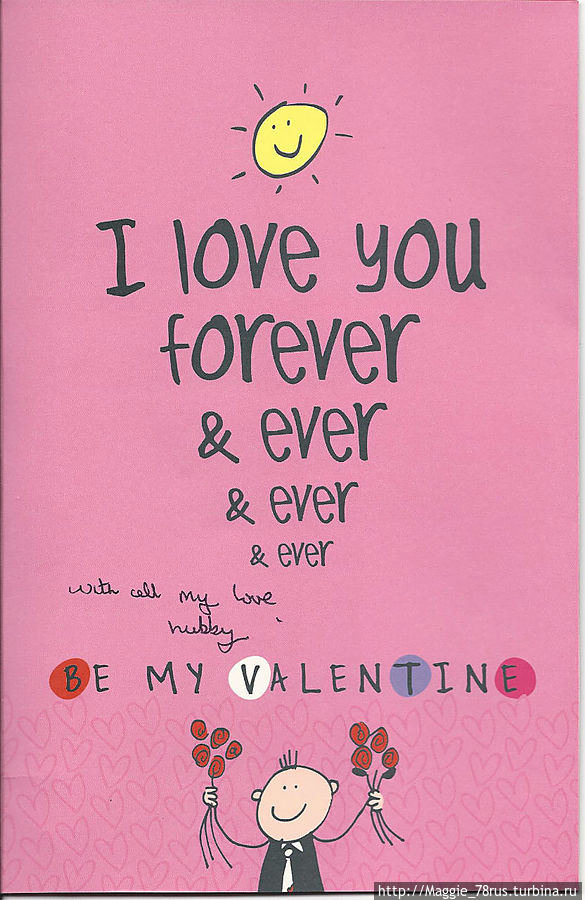 I love you
forever
& ever
& ever
& ever
with all my love
hubby
BE MY VALENTINE
http://Maggie_78rus.turbina.ru